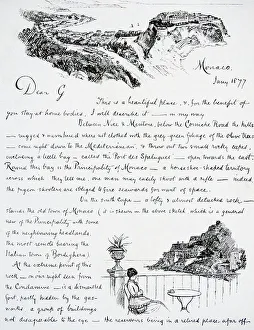 Monaco.
Jany 1877
Dear G
This is a beautiful place, & for the benefit of
you stay at home bodies, I will describe it — in my way
Between Nice & Mentone, below the Corniche Road the hills
— rugged & numbered where not clothed with the grey-green foliage of the Olive trees
— come right down to the Mediterranean, & throw out two small rocky capes,
enclosing a little bay — called the Port des Spelugues — open towards the east.
Round this bay is the Principality of Monaco — a horseshoe shaped territory
across which, they tell me, one man may easily shoot with a rifle — indeed
the pigeon shooters are obliged to fire seawards for want of space.
On the south Cape — a lofty & almost detached rock —
stands the old town of Monaco (it is shewn in the above sketch which is a general
view of the Principality with some
of the neighbouring headlands,
the most remote bearing the
Italian town of Bordighera)
At the extreme point of this
rock — on our right seen from
the Condamine — is a dismantled
fort, partly hidden by the gas-
works a group of buildings
not disagreeable to the eye — the reservoirs being in a retired place, afar off